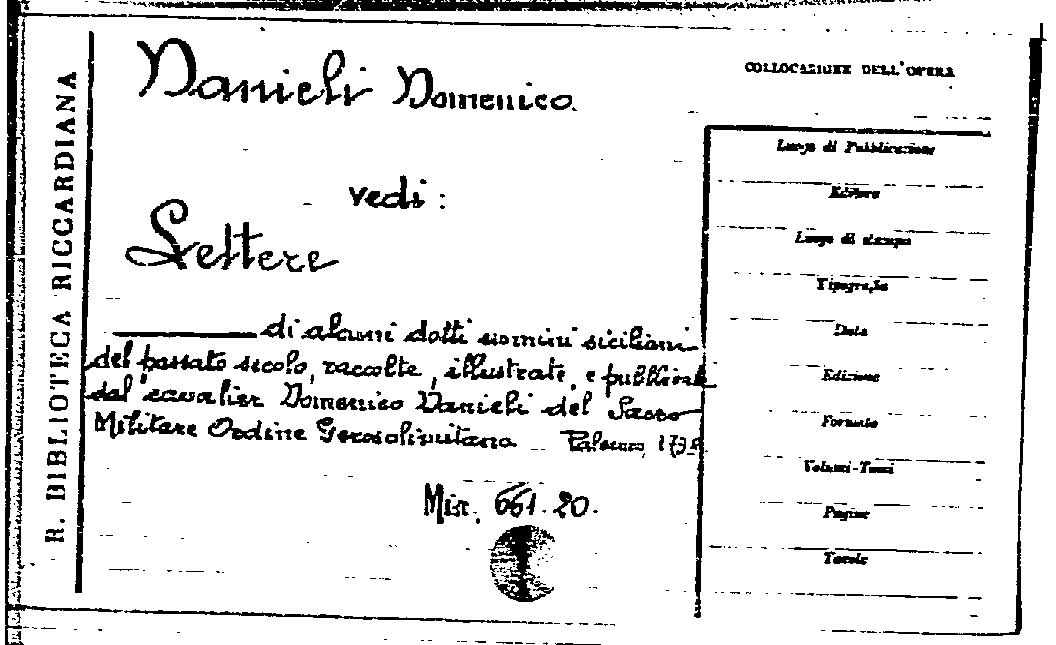 R. BIBLIOTECA RICCARDIANA
Danieli Domenico
vedi:
Lettere
di alcuni dotti uomini siciliani
del passato secolo, raccolte, illustrate, e pubblicate
dal cavalier Domenico Danieli del Sacro
Militare Ordine Gerosolimitano Palermo, 
Misc. 661.20.
COLLOCAZIONE DELL'OPERA
Luogo di Pubblicazione
Editore
Luogo di stampa
Tipografia
Data
Edizione
Formato
Volumi-Tomi
Pagine
Tavole